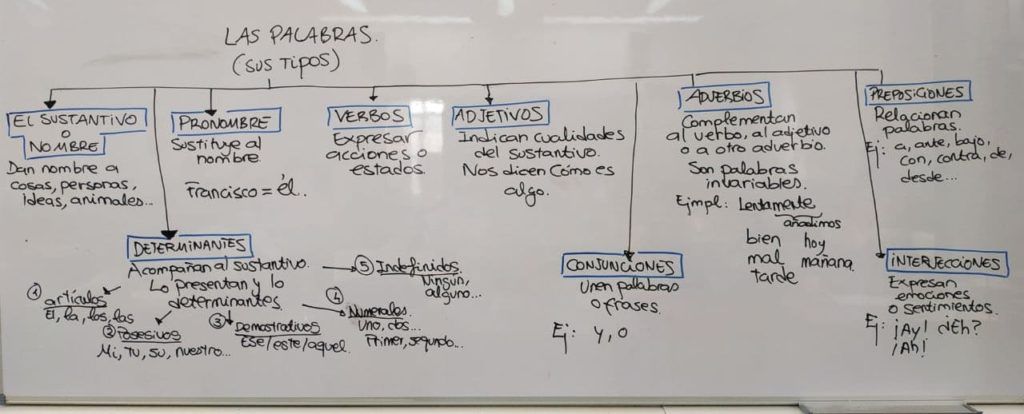 LAS PALABRAS.
(SUS TIPOS)
EL SUSTANTIVO
O
NOMBRE
Dan nombre a
cosas, personas,
ideas, animales...
PRONOMBRE
Sustituye al
nombre.
Francisco = él.
VERBOS
Expresar
acciones o
estados.
ADJETIVOS
Indican cualidades
del sustantivo.
Nos dicen cómo es
algo.
ADVERBIOS
Complementan
al verbo, al adjetivo
o a otro adverbio.
Son palabras
invariables.
Ejmpl: Lentamente
añadimos
bien hoy
mal mañana.
tarde
PREPOSICIONES
Relacionan
palabras.
Ej: a, ante, bajo,
con, contra, de,
desde...
DETERMINANTES
Acompañan al sustantivo.
Lo presentan y lo
determinantes
① artículos
El, la, los, las
② Posesivos
Mi, tu, su, nuestro...
③ Demostrativos
Ese/este/aquel
④ Numerales
Uno, dos...
Primer, segundo...
⑤ Indefinidos.
Ningún,
alguno...
CONJUNCIONES
Unen palabras
o frases.
Ej: y, o
INTERJECCIONES
Expresan
emociones
o sentimientos.
Ej: ¡Ay! ¿Eh?
¡Ah!